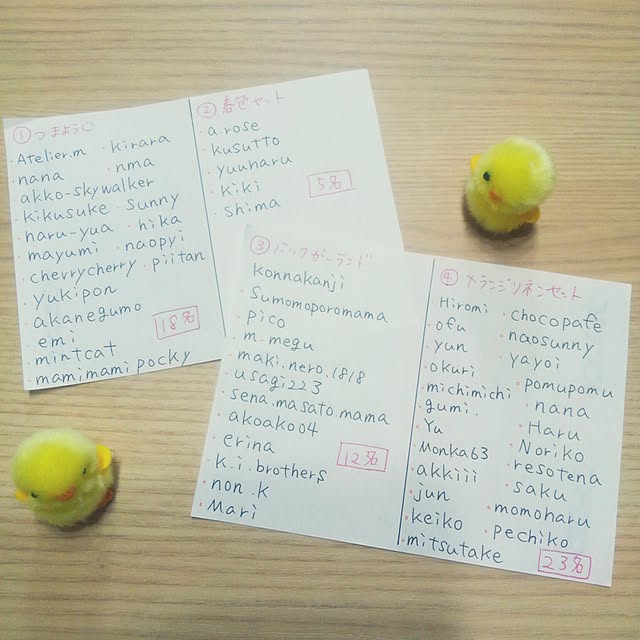 ① つまようじ
・Atelier.m ・kirara
・nana ・nma
・akko-skywalker
・kikusuke ・sunny
・haru-yua ・hika
・mayumi ・naopyi
・chevrycherry ・piitan
・yukipon
・akanegumo
・emi
・mintcat
・mamimami pocky
18名
② 春色セット
・a.rose
・kusutto
・yuuharu
・kiki
・shima
5名
③ バックガーランド
・konnakanji
・Sumomoporomama
・pico
・m.megu
・maki.nero.1818
・usagi223
・sena.masato.mama
・akoako04
・erina
・k.i.brothers
・non.k
・Mari
12名
④ メランジリネンセット
・Hiromi ・chocopafe
・ofu ・naosunny
・yun ・yayoi
・okuri ・pomupomu
・michimichi ・nana
・gumi. ・Haru
・Yu ・Noriko
・Monka63 ・resotena
・akkiii ・saku
・jun ・momoharu
・keiko ・pechiko
・mitsutake
23名